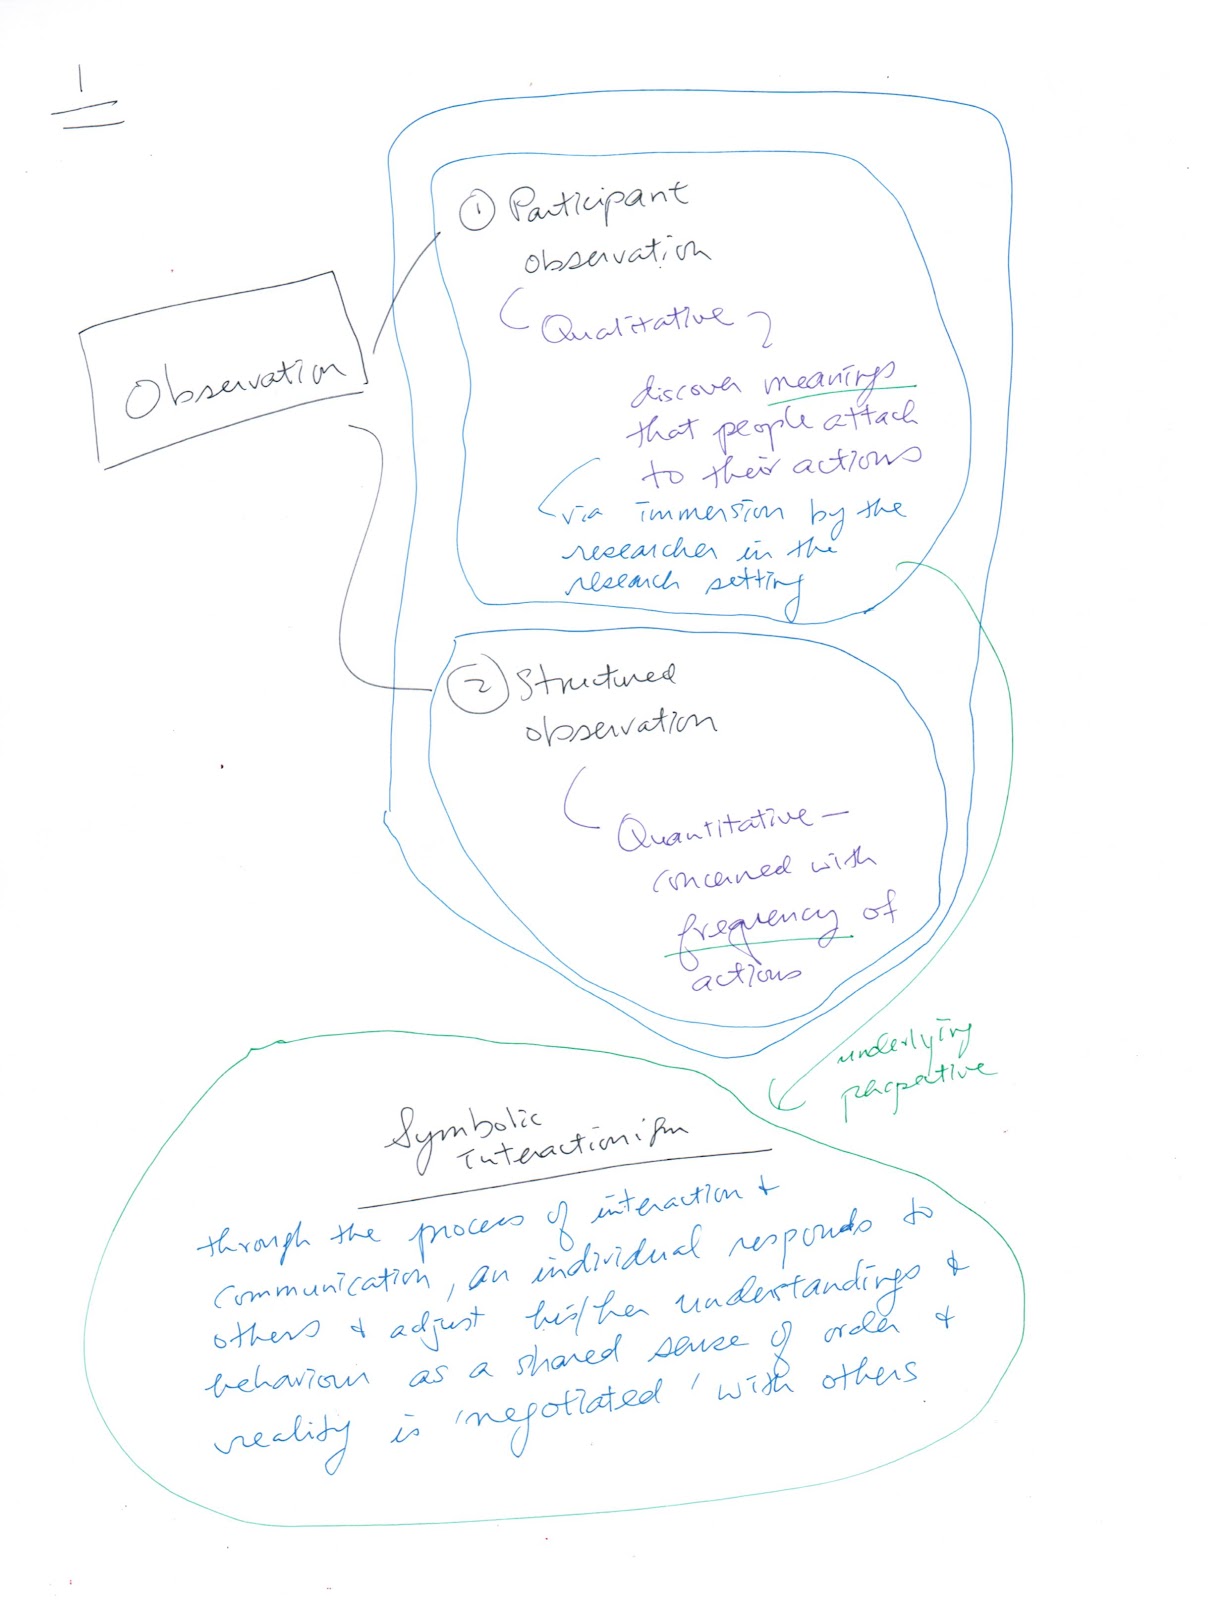 1
Observation
① Participant
observation
Qualitative
discover meanings
that people attach
to their actions
via immersion by the
researcher in the
research setting
② Structured
observation
Quantitative –
concerned with
frequency of
actions
underlying
perspective
Symbolic
interactionism
through the process of interaction &
communication, an individual responds to
others & adjust his/her understandings &
behaviour as a shared sense of order &
reality is 'negotiated' with others